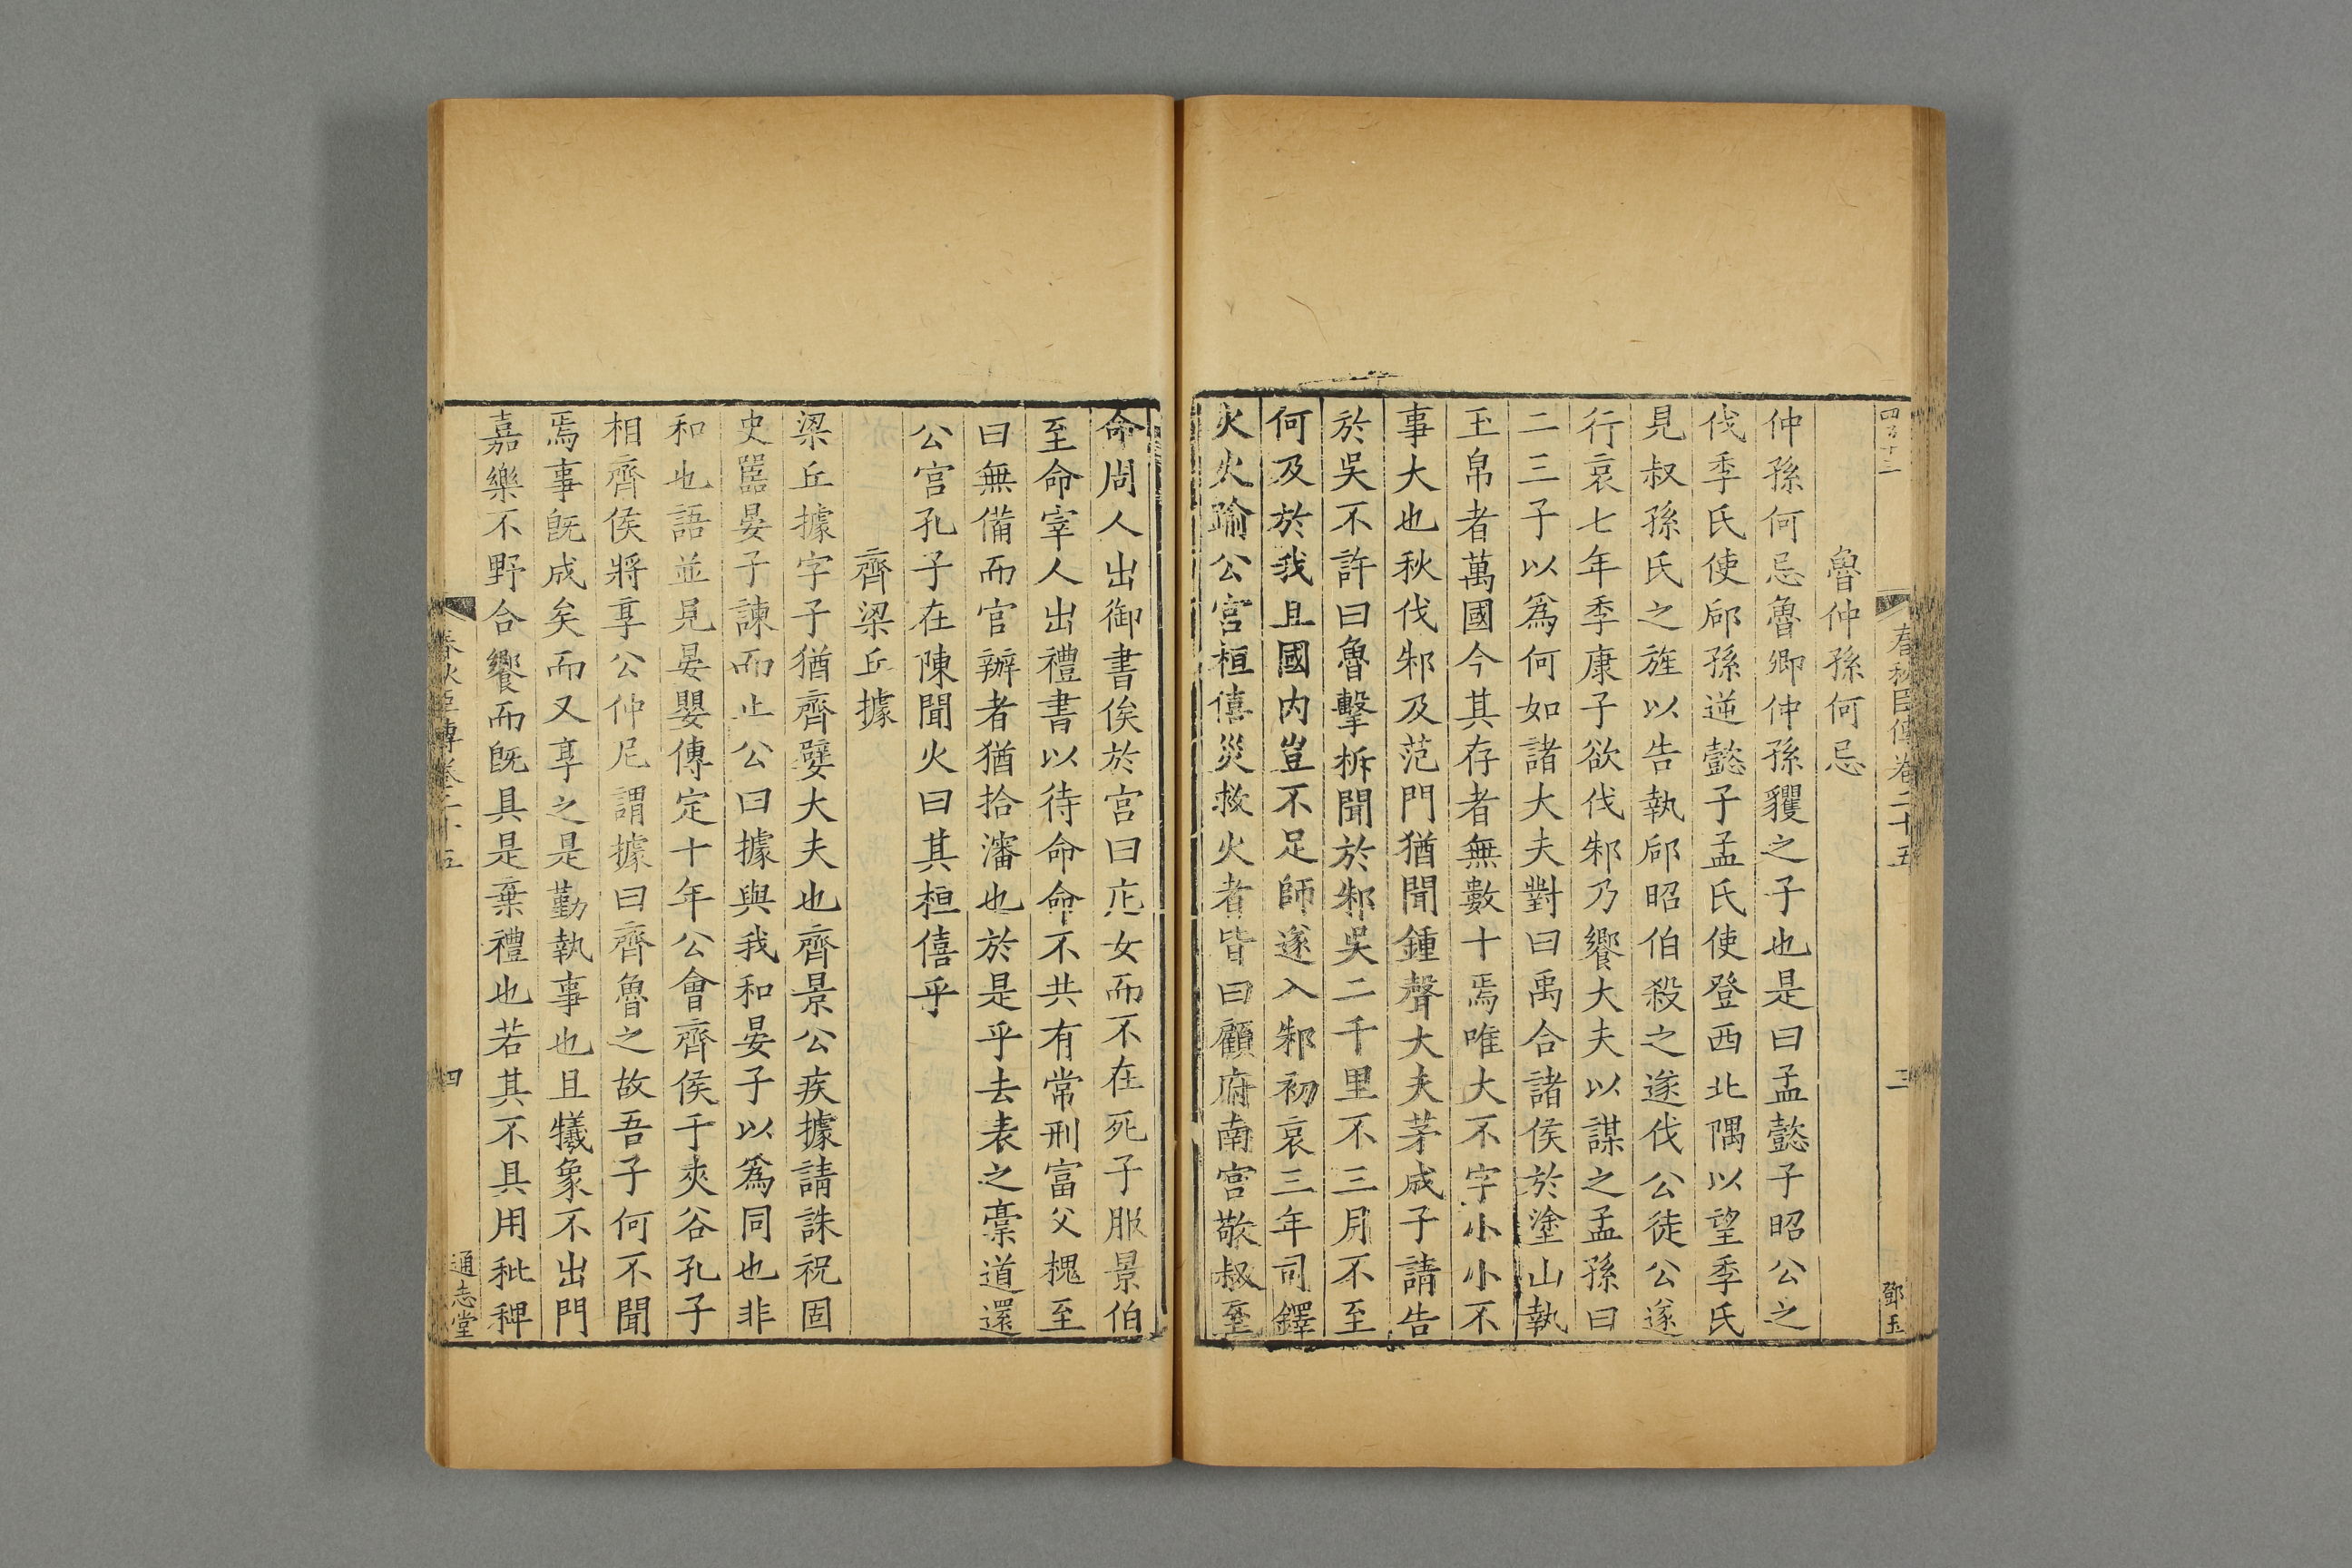 春秋臣傳卷二十五
三
鄧玉
魯仲孫何忌
仲孫何忌魯卿仲孫貜之子也是曰孟懿子昭公之
伐季氏使郈孫逆懿子孟氏使登西北隅以望季氏
見叔孫氏之旌以告執郈昭伯殺之遂伐公徒公遂
行哀七年季康子欲伐邾乃饗大夫以謀之孟孫曰
二三子以爲何如諸大夫對曰禹合諸侯於塗山執
玉帛者萬國今其存者無數十焉唯大不字小小不
事大也秋伐邾及范門猶聞鍾聲大夫茅成子請告
於吳不許曰魯擊柝聞於邾吳二千里不三月不至
何及於我且國内豈不足師遂入邾初哀三年司鐸
火火踰公宮桓僖災救火者皆曰顧府南宮敬叔至
命周人出御書俟於宮曰庀女而不在死子服景伯
至命宰人出禮書以待命命不共有常刑富父槐至
曰無備而官辦者猶拾瀋也於是乎去表之槀道還
公宮孔子在陳聞火曰其桓僖乎
齊梁丘據
梁丘據字子猶齊嬖大夫也齊景公疾據請誅祝固
史嚚晏子諫而止公曰據與我和晏子以爲同也非
和也語並見晏嬰傳定十年公會齊侯于夾谷孔子
相齊侯將享公仲尼謂據曰齊魯之故吾子何不聞
焉事旣成矣而又享之是勤執事也且犧象不出門
嘉樂不野合饗而旣具是棄禮也若其不具用秕稗
春秋臣傳卷二十五
四
通志堂